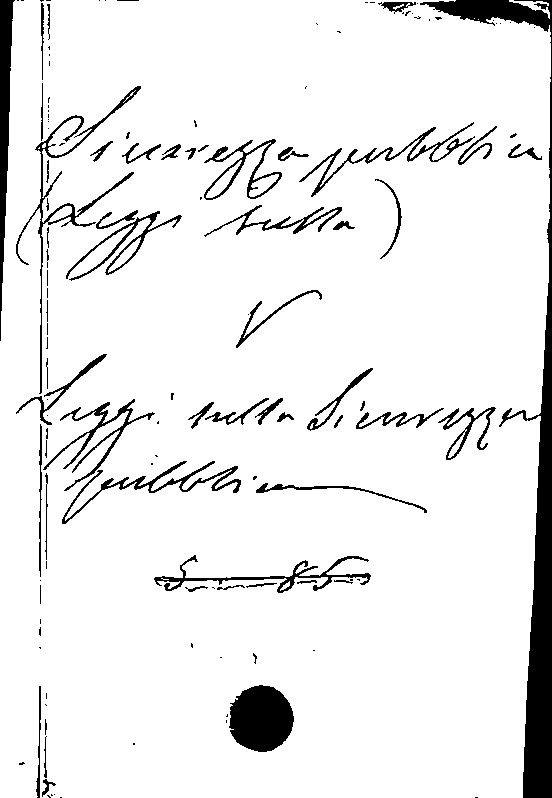 Sicurezza pubblica
(Leggi sulla)
V
Leggi sulla Sicurezza
pubblica
5. 85